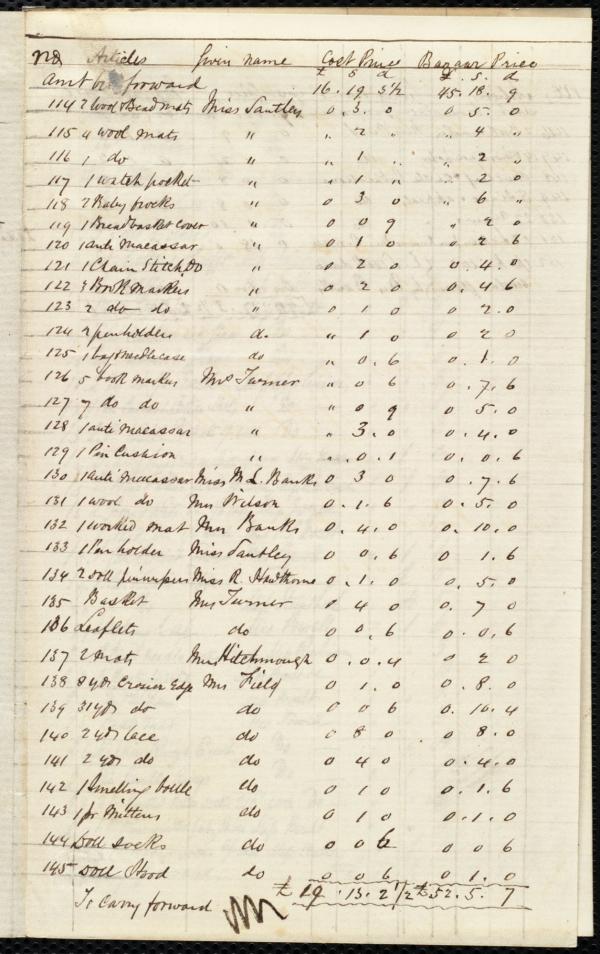 No Articles Given name Cost Price Bazaar Price
£ s d £. s. d
Amt bro forward 16. 19 5½ 45. 18. 9
114 2 Wool & Bead mats Miss Santley 0. 3. 0 0 5. 0
115 4 wool mats " " 2 " " 4 "
116 1 do " " 1 " " 2 "
117 1 watch pocket " " 1 " " 2 0
118 2 Baby frocks " 0 3 0 " 6 "
119 1 Breadbasket cover " 0 0 9 " 2 0
120 1 anti Macassar " 0 1 0 " 2 6
121 1 Chain Stitch Do " 0 2 0 0. 4. 0
122 Book Markers " 0 2 0 0. 4 6
123 2 do do " 0 1 0 0 2. 0
124 2 penholders d. " 1 0 0 2 0
125 1 bag & needlecase do " 0. 6 0. 1. 0
126 5 book markers Mrs Turner " 0 6 0. 7. 6
127 7 do do " " 0 9 0 5. 0
128 1 anti macassar " " 3. 0 0. 4. 0
129 1 Pin Cushion " " 0. 1 0 0. 6
130 1 anti Macassar Miss M. L. Banks 0 3 0 0 . 7. 6
131 1 wool do Mrs Wilson 0. 1. 6 0. 5. 0
132 1 worked mat Mrs Banks 0. 4. 0 0. 10. 0
133 1 Penholder Miss Santley 0 0. 6 0 1. 6
134 2 doll Miss R. Hawthorne 0. 1. 0 0. 5. 0
135 Basket Mrs Turner 0 4 0 0. 7 0
136 Leaflets do 0 0. 6 0. 0. 6
137 2 mats Mrs Hitchmough 0. 0. 4 0 2 0
138 8 yds Crosier Edge Mrs Field 0 1. 0 0. 8. 0
139 31 yds do do 0 0 6 0. 10. 4
140 2 yds lace do 0 8 0 0 8. 0
141 2 yds do do 0 4 0 0. 4. 0
142 1 Smelling bottle do 0 1 0 0. 1. 6
143 1 pr Mittens do 0 1 0 0. 1. 0
144 Doll socks do 0 0 6 0 0 6
145 Doll Hood do 0 0 6 0 1. 0
To Carry forward £ 19 . 13. 2½ £52. 5. 7